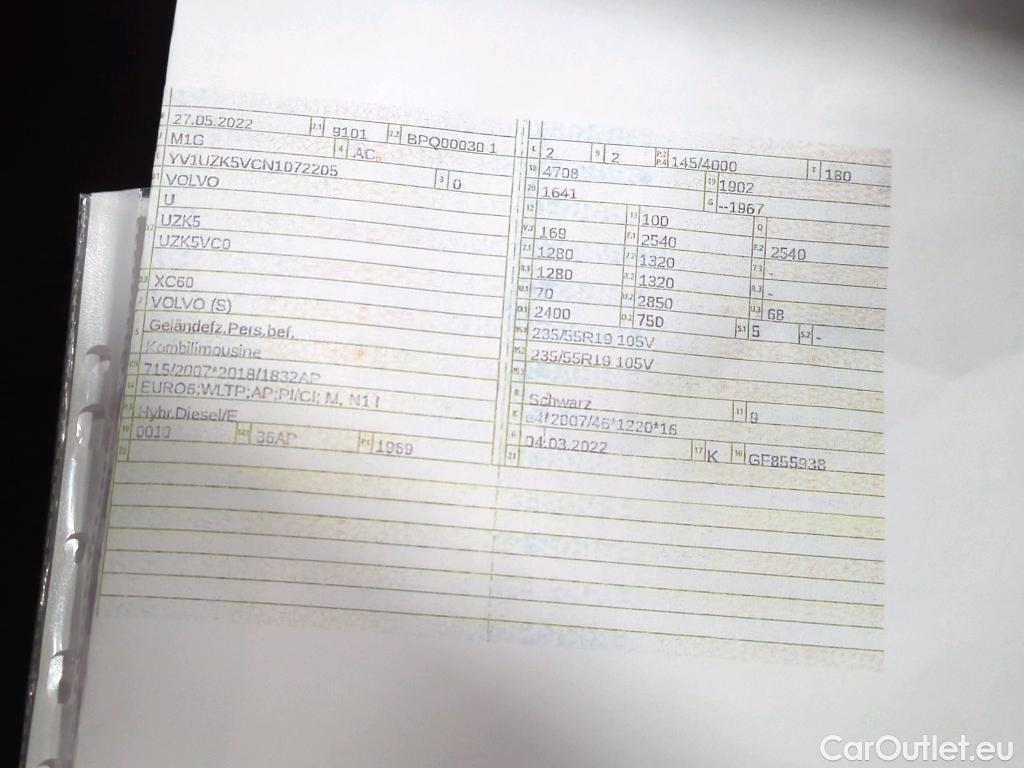 27.05.2022 2.1 9101 2.2 BPQ00030 1
M1G 4 AC
YV1UZK5VCN1072205 3 0
VOLVO
U
UZK5
UZK5VC0
XC60
VOLVO (S)
5 Geländefz.Pers.bef.
Kombilimousine
715/2007*2018/1832AP
14 EURO6;WLTP;AP;PI/CI; M, N1 I
Hybr.Diesel/E
10 0010 14.1 36AP P.1 1969
22
L 2 9 2 P.2 P.4 145/4000 T 180
18 4708 19 1902
20 1641 G --1967
12 13 100 Q
V.7 169 F.1 2540 F.2 2540
7.1 1280 7.2 1320 7.3 -
8.1 1280 8.2 1320 8.3 -
U.1 70 U.2 2850 U.3 68
O.1 2400 O.2 750 S.1 5 S.2 -
15.1 235/55R19 105V
15.2 235/55R19 105V
15.3
R Schwarz 11 9
K e4*2007/46*1220*16
6 04.03.2022 17 K 16 GF855938
21
CarOutlet.eu